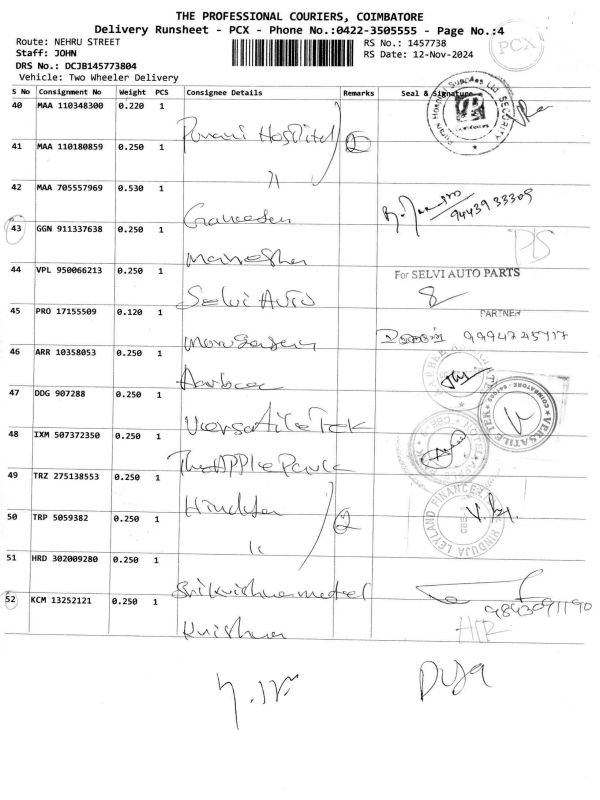 THE PROFESSIONAL COURIERS, COIMBATORE
Delivery Runsheet - PCX - Phone No.:0422-3505555 - Page No.:4
Route: NEHRU STREET
RS No.: 1457738
Staff: JOHN
RS Date: 12-Nov-2024
DRS No.: DCJB145773804
Vehicle: Two Wheeler Delivery
PCX
S No Consignment No Weight PCS Consignee Details Remarks Seal & Signature
40 MAA 110348300 0.220 1 Purani Hospital
41 MAA 110180859 0.250 1 〃 2
42 MAA 705557969 0.530 1 Ganeesan 9443933309
43 GGN 911337638 0.250 1
44 VPL 950066213 0.250 1 Selvi Auto For SELVI AUTO PARTS
PARTNER
45 PRO 17155509 0.120 1
46 ARR 10358053 0.250 1
47 DDG 907288 0.250 1 Versatile Tek VERSATILE TEK
48 IXM 507372350 0.250 1 The Apple Park
49 TRZ 275138553 0.250 1 Hinduja HINDUJA LEYLAND FINANCE
50 TRP 5059382 0.250 1 〃 2
51 HRD 302009280 0.250 1 Sri Krishna metal
52 KCM 13252121 0.250 1 Krishna